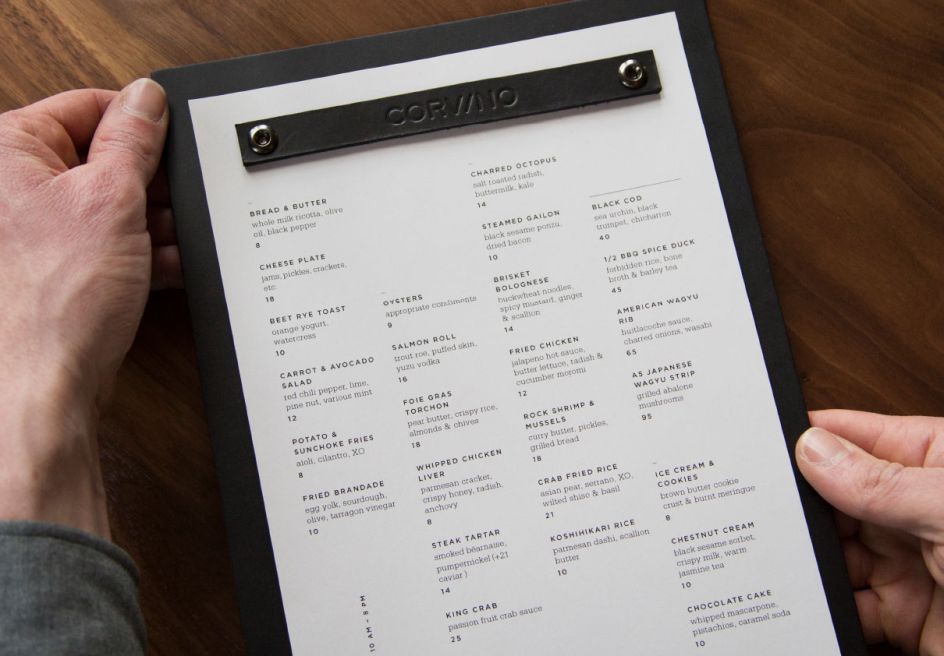 CORVINO
BREAD & BUTTER
whole milk ricotta, olive
oil, black pepper
8
CHEESE PLATE
jams, pickles, crackers,
etc.
18
BEET RYE TOAST
orange yogurt,
watercress
10
CARROT & AVOCADO
SALAD
red chili pepper, lime,
pine nut, various mint
12
POTATO &
SUNCHOKE FRIES
aioli, cilantro, XO
8
FRIED BRANDADE
egg yolk, sourdough,
olive, tarragon vinegar
10
10 AM – 8 PM
OYSTERS
appropriate condiments
9
SALMON ROLL
trout roe, puffed skin,
yuzu vodka
16
FOIE GRAS
TORCHON
pear butter, crispy rice,
almonds & chives
18
WHIPPED CHICKEN
LIVER
parmesan cracker,
crispy honey, radish,
anchovy
8
STEAK TARTAR
smoked béarnaise,
pumpernickel (+21
caviar )
14
KING CRAB
passion fruit crab sauce
25
CHARRED OCTOPUS
salt roasted radish,
buttermilk, kale
14
STEAMED GAILON
black sesame ponzu,
dried bacon
10
BRISKET
BOLOGNESE
buckwheat noodles,
spicy mustard, ginger
& scallion
14
FRIED CHICKEN
jalapeno hot sauce,
butter lettuce, radish &
cucumber moromi
12
ROCK SHRIMP &
MUSSELS
curry butter, pickles,
grilled bread
18
CRAB FRIED RICE
asian pear, serrano, XO,
wilted shiso & basil
21
KOSHIHIKARI RICE
parmesan dashi, scallion
butter
10
BLACK COD
sea urchin, black
trumpet, chicharion
40
1/2 BBQ SPICE DUCK
forbidden rice, bone
broth & barley tea
45
AMERICAN WAGYU
RIB
huitlacoche sauce,
charred onions, wasabi
65
A5 JAPANESE
WAGYU STRIP
grilled abalone
mushrooms
95
ICE CREAM &
COOKIES
brown butter cookie
crust & burnt meringue
8
CHESTNUT CREAM
black sesame sorbet,
crispy milk, warm
jasmine tea
10
CHOCOLATE CAKE
whipped mascarpone,
pistachios, caramel soda
10